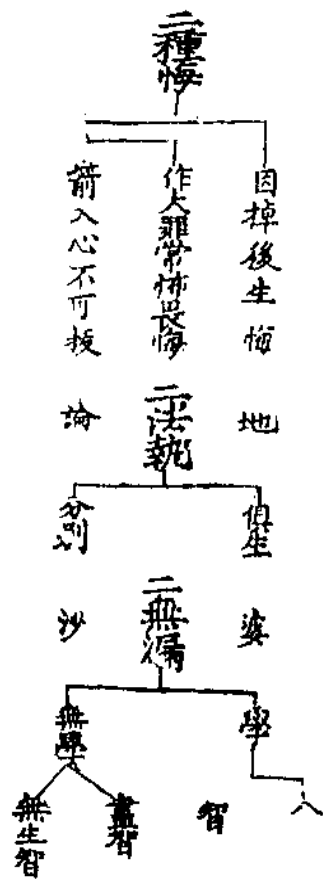 二種悔
因掉後生悔
作大罪常怖畏悔
箭入心不可拔
地論
二法執
俱生
分別
婆沙
二無漏
學
八智
無學
盡智
無生智